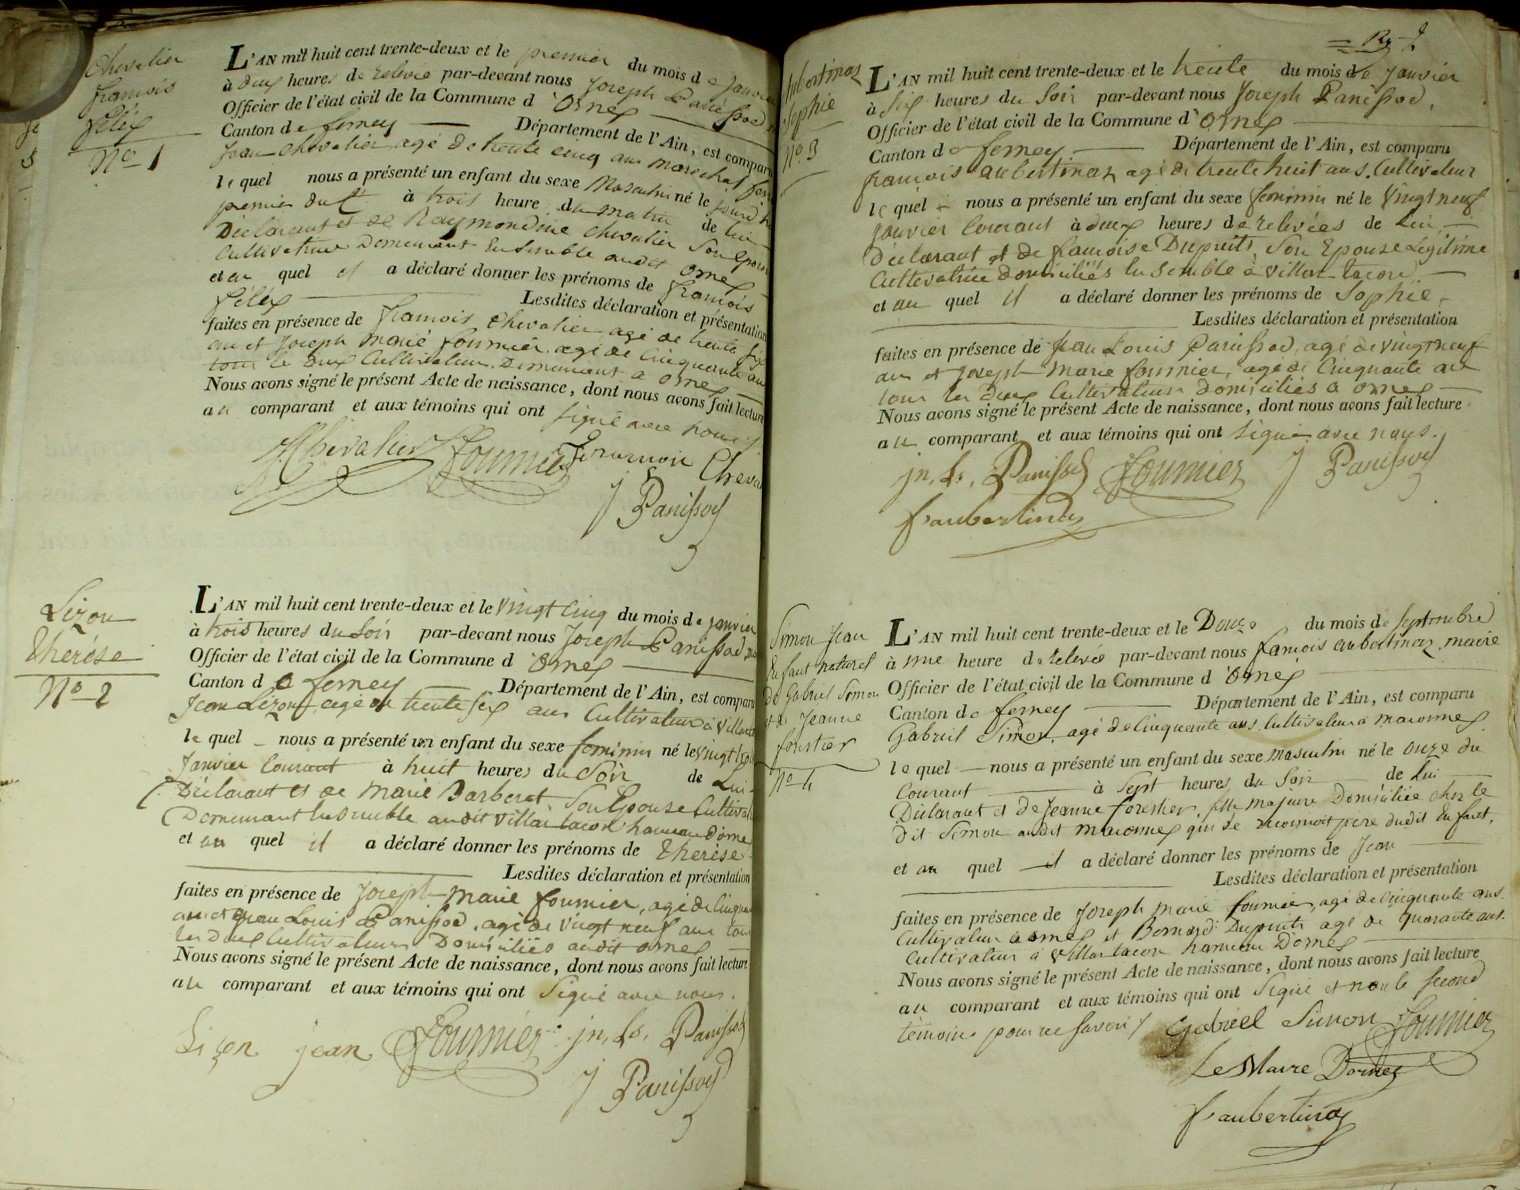 Chevalier
françois
félix
N.o 1
L'AN mil huit cent trente-deux et le premier du mois de Janvier
à deux heures de relevée par-devant nous Joseph Panissod
Officier de l'état civil de la Commune d'Ornex
Canton de ferney Département de l'Ain, est comparu
Jean Chevalier agé de trente cinq ans marechal
lequel nous a présenté un enfant du sexe Masculin né le
premier du Ct à trois heure du matin de lui
Déclarant et de Raymondine Chevalier Son Epouse
Cultivatrice Demeurant Ensemble audit Ornex
et au quel il a déclaré donner les prénoms de françois
félix Lesdites déclaration et présentation
faites en présence de françois Chevalier agé de trente six
ans et Joseph Marie fournier agé de Cinquante ans
tous les deux Cultivateurs Demeurant à Ornex
Nous avons signé le présent Acte de naissance, dont nous avons fait lecture
au comparant et aux témoins qui ont signé avec nous
Chevalier Fournier françois Cheva
J Panissod
Lizon
Thérèse
N.o 2
L'AN mil huit cent trente-deux et le vingt cinq du mois de janvier
à trois heures du Soir par-devant nous Joseph Panissod
Officier de l'état civil de la Commune d'Ornex
Canton de ferney Département de l'Ain, est comparu
Jean Lizon agé de trente six ans Cultivateur à Villard
lequel nous a présenté un enfant du sexe feminin né le vingt
Janvier Courant à huit heures du Soir de Lui
Déclarant et de Marie Barberat Son Epouse Cultivat
Demeurant Ensemble audit Villar tacon hameau d'ornex
et au quel il a déclaré donner les prénoms de Thérèse
Lesdites déclaration et présentation
faites en présence de Joseph Marie fournier, agé de Cinquante
ans et Jean Louis Panissod, agé de vingt neuf ans tous
les deux Cultivateurs Domiciliés audit Ornex
Nous avons signé le présent Acte de naissance, dont nous avons fait lecture
au comparant et aux témoins qui ont Signé avec nous.
Lizon jean Fournier jn. Ls. Panissod
J Panissod
Aubertinaz
Sophie
N.o 3
L'AN mil huit cent trente-deux et le trente du mois de Janvier
à Six heures du Soir par-devant nous Joseph Panissod,
Officier de l'état civil de la Commune d'Ornex
Canton de ferney Département de l'Ain, est comparu
françois aubertinaz agé de trente huit ans, Cultivateur
lequel nous a présenté un enfant du sexe feminin né le vingt neuf
janvier Courant à deux heures de relevées de Lui,
Déclarant et de françoise Dupuits, Son Epouse Légitime
Cultivatrice domiciliés Ensemble à Villar tacon
et au quel il a déclaré donner les prénoms de Sophie
Lesdites déclaration et présentation
faites en présence de Jean Louis Panissod, agé de vingt neuf
ans et Joseph Marie fournier, agé de Cinquante ans
tous les deux Cultivateurs Domiciliés à Ornex
Nous avons signé le présent Acte de naissance, dont nous avons fait lecture
au comparant et aux témoins qui ont signé avec nous.
jn. Ls. Panissod Fournier J Panissod
f aubertinaz
Simon Jean
Enfant naturel
de Gabriel Simon
et de Jeanne
forestier
N.o 4
L'AN mil huit cent trente-deux et le Douze du mois de Septembre
à une heure de relevée par-devant nous françois aubertinaz maire
Officier de l'état civil de la Commune d'Ornex
Canton de ferney Département de l'Ain, est comparu
Gabriel Simon, agé de Cinquante ans Cultivateur à maconnex
lequel nous a présenté un enfant du sexe Masculin né le onze du
Courant à Sept heures du Soir de Lui
Déclarant et de Jeanne forestier, fille majeure Domiciliée chez le
dit Simon audit maconnex qui se reconnoit pere dudit Enfant,
et au quel il a déclaré donner les prénoms de Jean
Lesdites déclaration et présentation
faites en présence de Joseph marie fournier, agé de Cinquante ans
Cultivateur à ornex et Bernard Dupuits agé de quarante ans
Cultivateur à Villar tacon hameau D'ornex
Nous avons signé le présent Acte de naissance, dont nous avons fait lecture
au comparant et aux témoins qui ont Signé et non le Second
témoin pour ne Savoir
Gabriel Simon Fournier
Le Maire Dornex
f aubertinaz